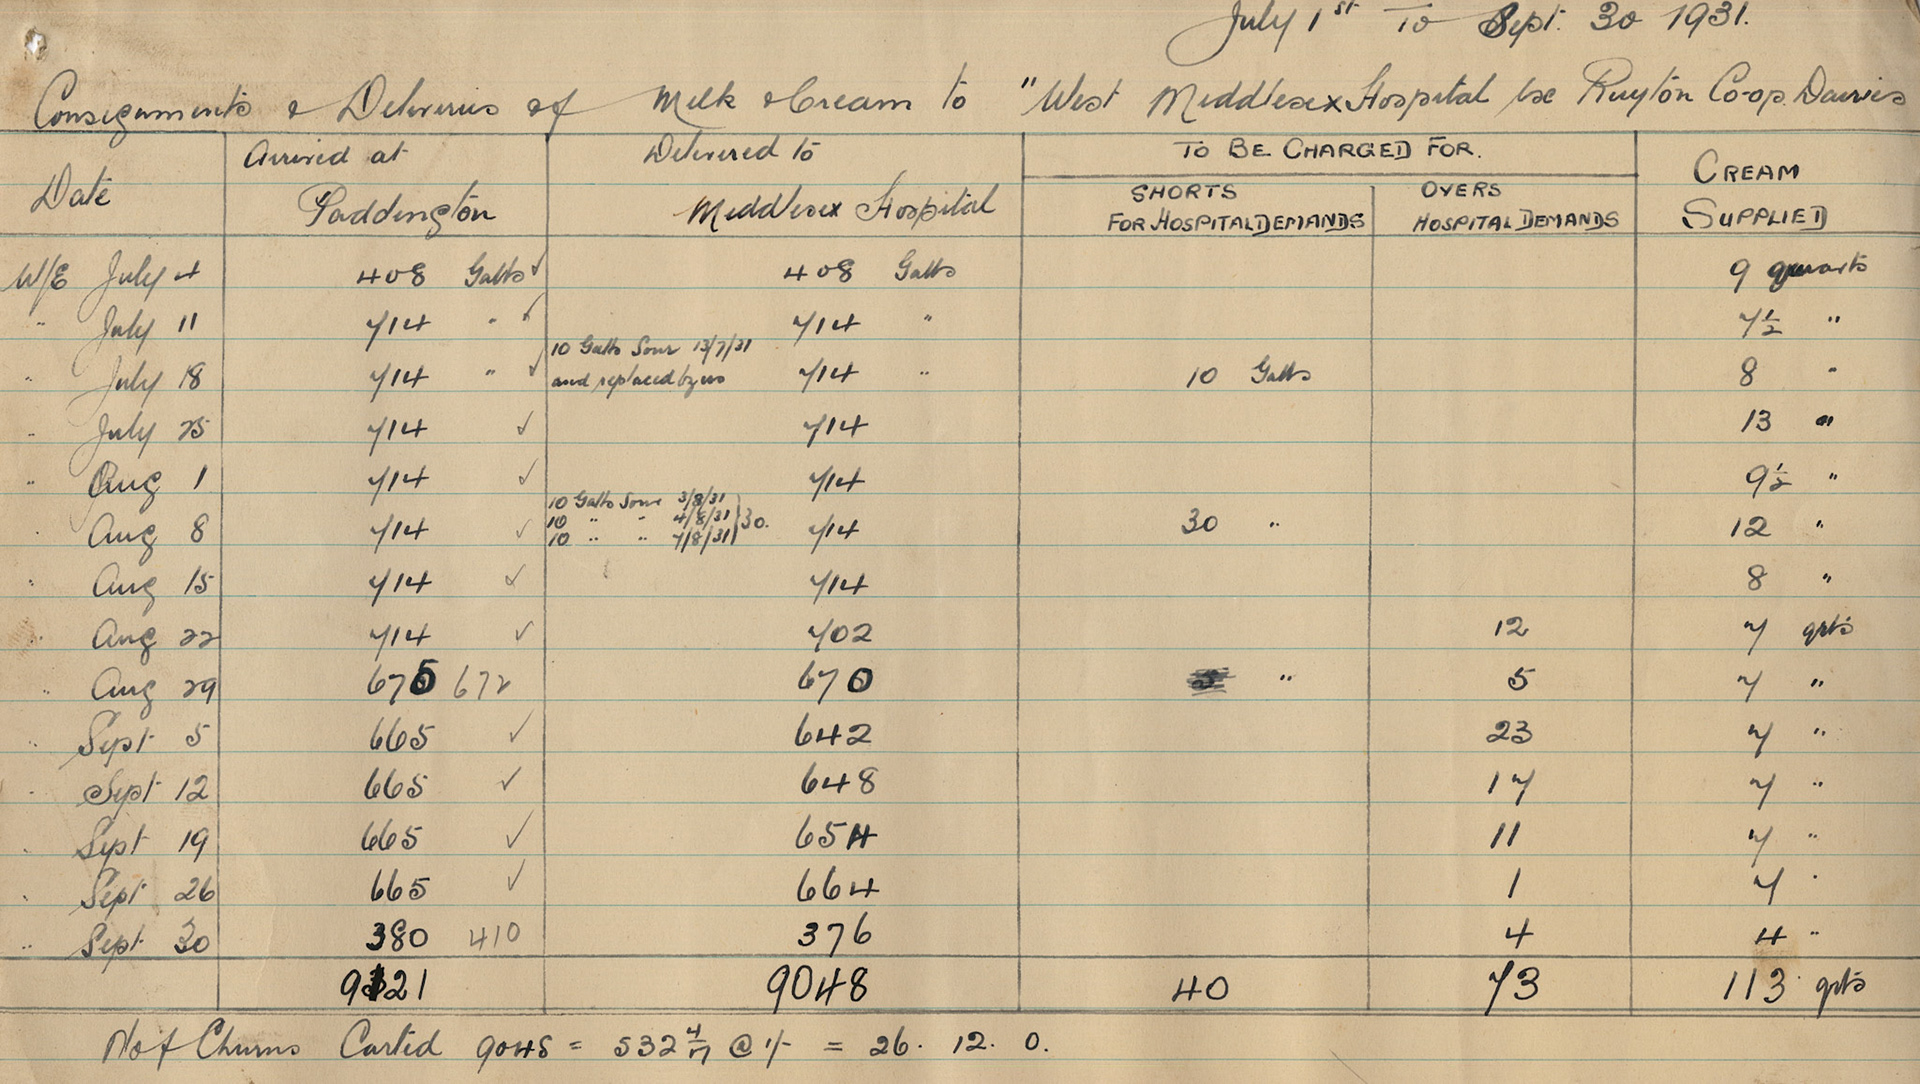 July 1st To Sept. 30 1931.
Consignments & Deliveries of Milk & Cream to "West Middlesex Hospital per Ruyton Co-op. Dairies
Date Arrived at Paddington Delivered to Middlesex Hospital TO BE CHARGED FOR. SHORTS FOR HOSPITAL DEMANDS OVERS HOSPITAL DEMANDS CREAM SUPPLIED
W/E July 4 408 Galls ✓ 408 Galls 9 quarts
" July 11 714 " ✓ 714 " 7½ "
10 Galls Sour 13/7/31
" July 18 714 " ✓ and replaced by us 714 " 10 Galls 8 "
" July 25 714 ✓ 714 13 "
" Aug 1 714 ✓ 714 9½ "
10 Galls Sour 3/8/31
" Aug 8 714 ✓ 10 " " 4/8/31 } 30. 714 30 " 12 "
10 " " 7/8/31
" Aug 15 714 ✓ 714 8 "
" Aug 22 714 ✓ 702 12 7 qrts
" Aug 29 675 672 670 " 5 7 "
" Sept 5 665 ✓ 642 23 7 "
" Sept 12 665 ✓ 648 17 7 "
" Sept 19 665 ✓ 654 11 7 "
" Sept 26 665 ✓ 664 1 7 "
" Sept 30 380 410 376 4 4 "
9121 9048 40 73 113 qrts
No of Churns Carted 9048 = 532 4/17 @ 1/- = 26. 12. 0.